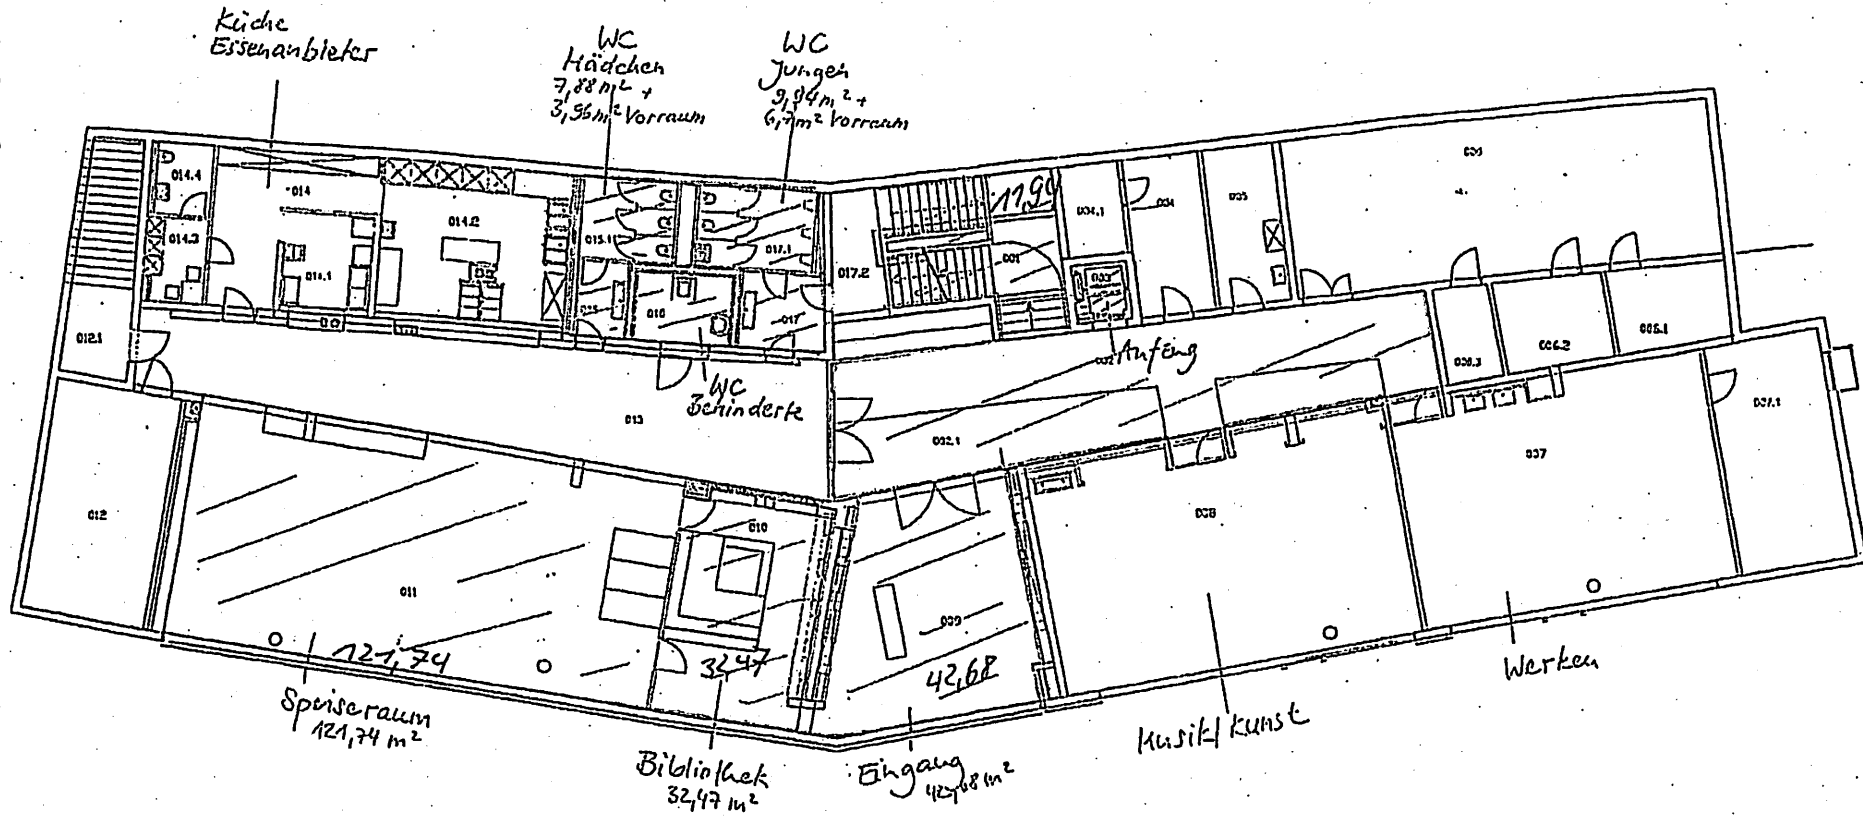 Küche
Essenanbieter
WC
Mädchen
7,88 m² +
3,96 m² Vorraum
WC
Jungen
6,7 m² Vorraum
014.4
014
014.2
014.3
014.1
015.1
017.1
016
017
017.2
11,90
001
003
004.1
004
005
006
012.1
WC
Behinderte
Aufzug
002.1
013
006.3
006.2
006.1
007
007.1
008
012
011
010
009
121,74
32,47
42,68
Speiseraum
121,74 m²
Bibliothek
32,47 m²
Eingang
42,68 m²
Musik/Kunst
Werken